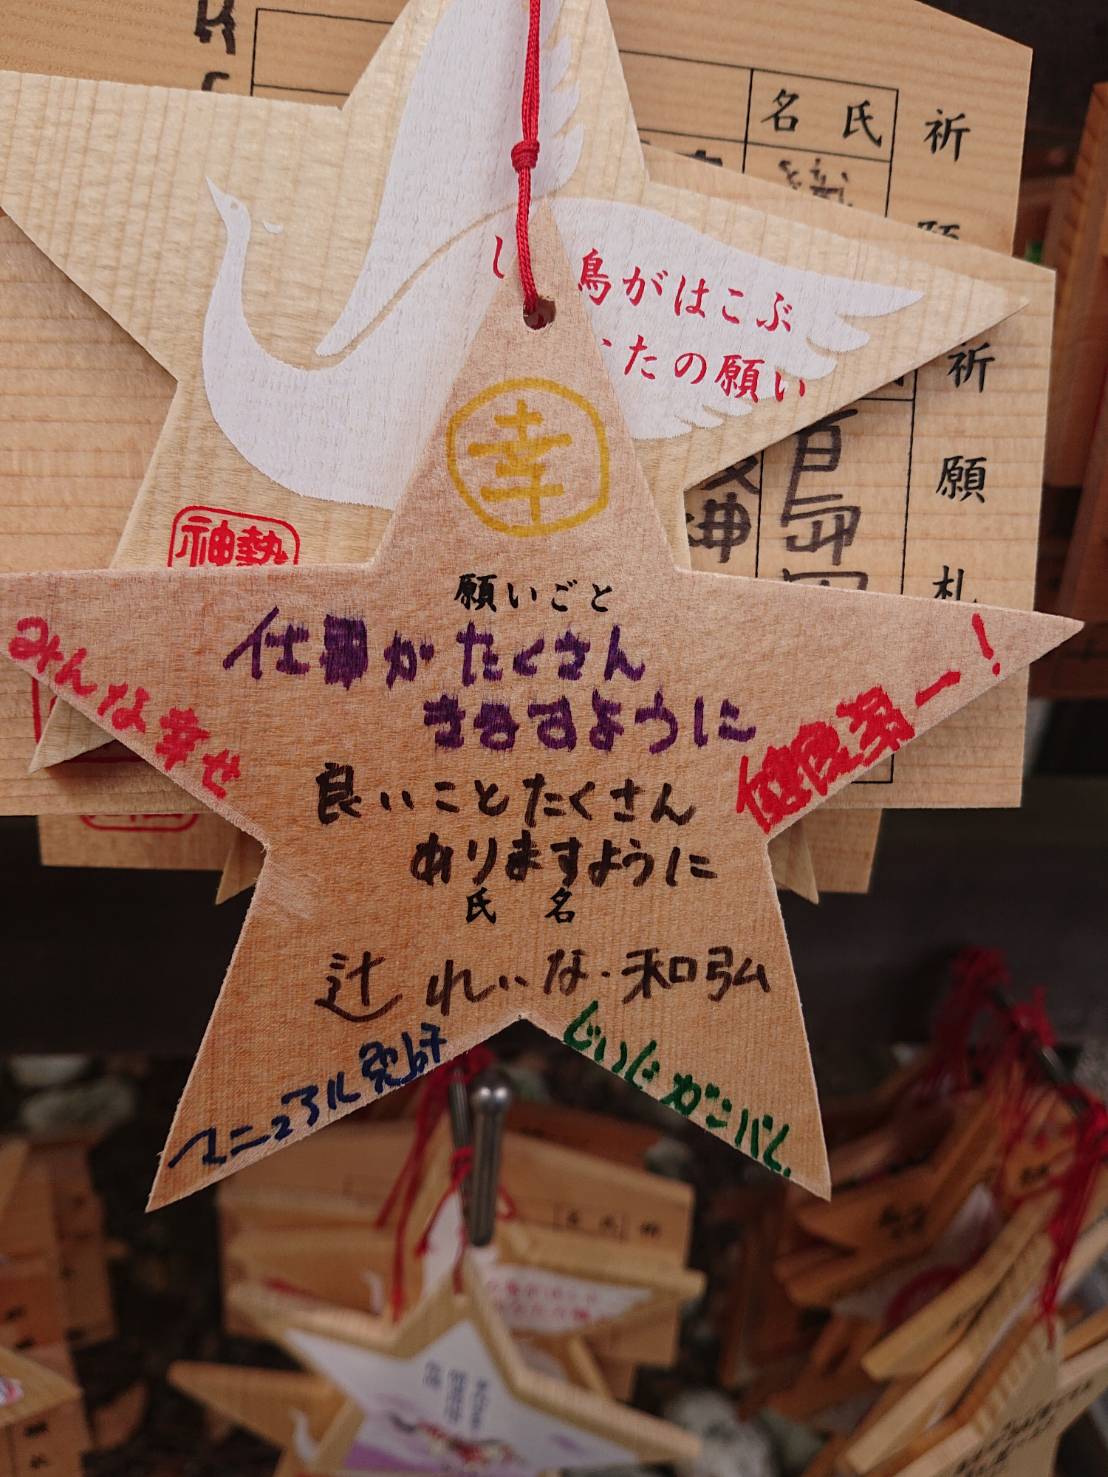 名 氏
祈
鳥がはこぶ
たの願い
祈
願
札
神勢
幸
願いごと
仕事がたくさん
きますように
良いことたくさん
ありますように
みんな幸せ
健康第一!
氏 名
辻 れいな・和弘
マニュアル免許
じいじガンバレ